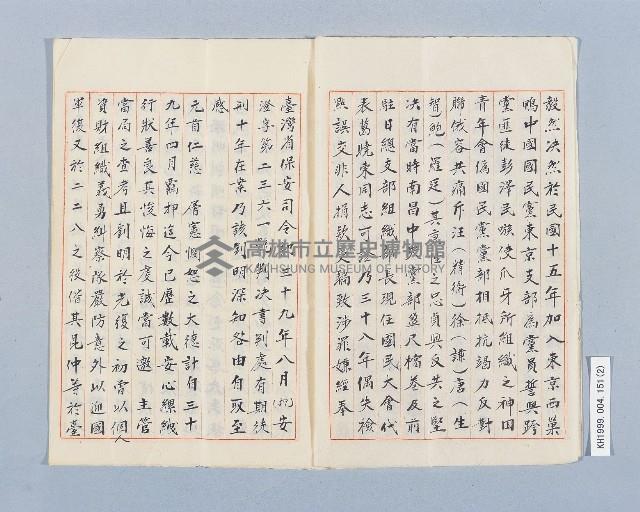 毅然决然於民國十五年加入東京西巢
鴨中國國民黨東京支部為黨員誓與跨
黨匪徒彭澤民嗾使爪牙所組織之神田
青年會偽國民黨黨部相抵抗竭力反對
聯俄容共痛斥汪(精衛)徐(謙)唐(生
智)鮑(羅廷)其意之忠貞與反共之堅
决有當時南昌中央黨部盔尺檔卷及前
駐日總支部組織部長現任國民大會代
表葛曉東同志可考乃三十八年偶失檢
點誤交非人捐款人輸致涉罪嫌經奉
臺灣省保安司令部三十九年八月(卅)安
澄字第二三六一號判决書判處有期徒
刑十年在案乃該釗明深知咎由自取至
感
元首仁慈 層憲憫恕之大德計自三十
九年四月羈押迄今已歷數載安心縲絏
行狀善良其悛悔之度誠當可邀 主管
當局之查考且釗明於光復之初嘗以個人
資財組織義勇糾察隊嚴防意外以迎國
軍復又於二二八之後偕其昆仲等於臺
高雄市立歷史博物館
KAOHSIUNG MUSEUM OF HISTORY
KH1999.004.151(2)